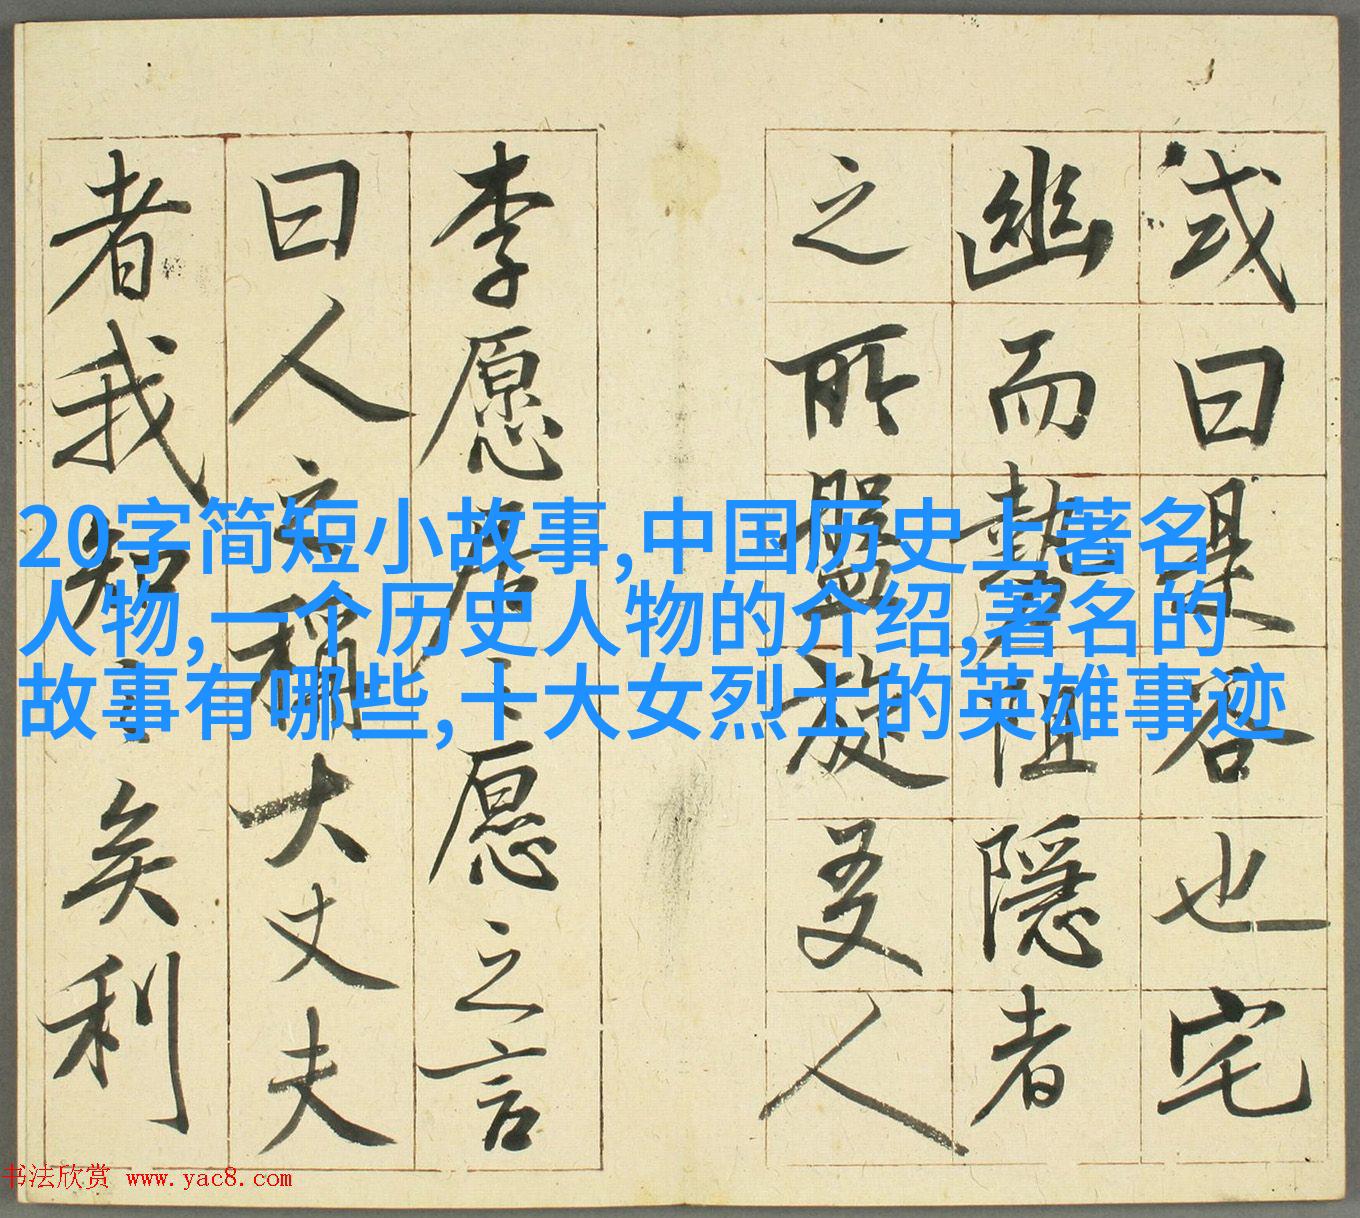 或曰是谷也宅
幽而勢阻隱者
之所盤旋友人
李愿居之愿之言
曰人之稱大丈夫
者我知之矣利
20字简短小故事,中国历史上著名
人物,一个历史人物的介绍,著名的
故事有哪些,十大女烈士的英雄事迹
书法欣赏 www.yac8.com